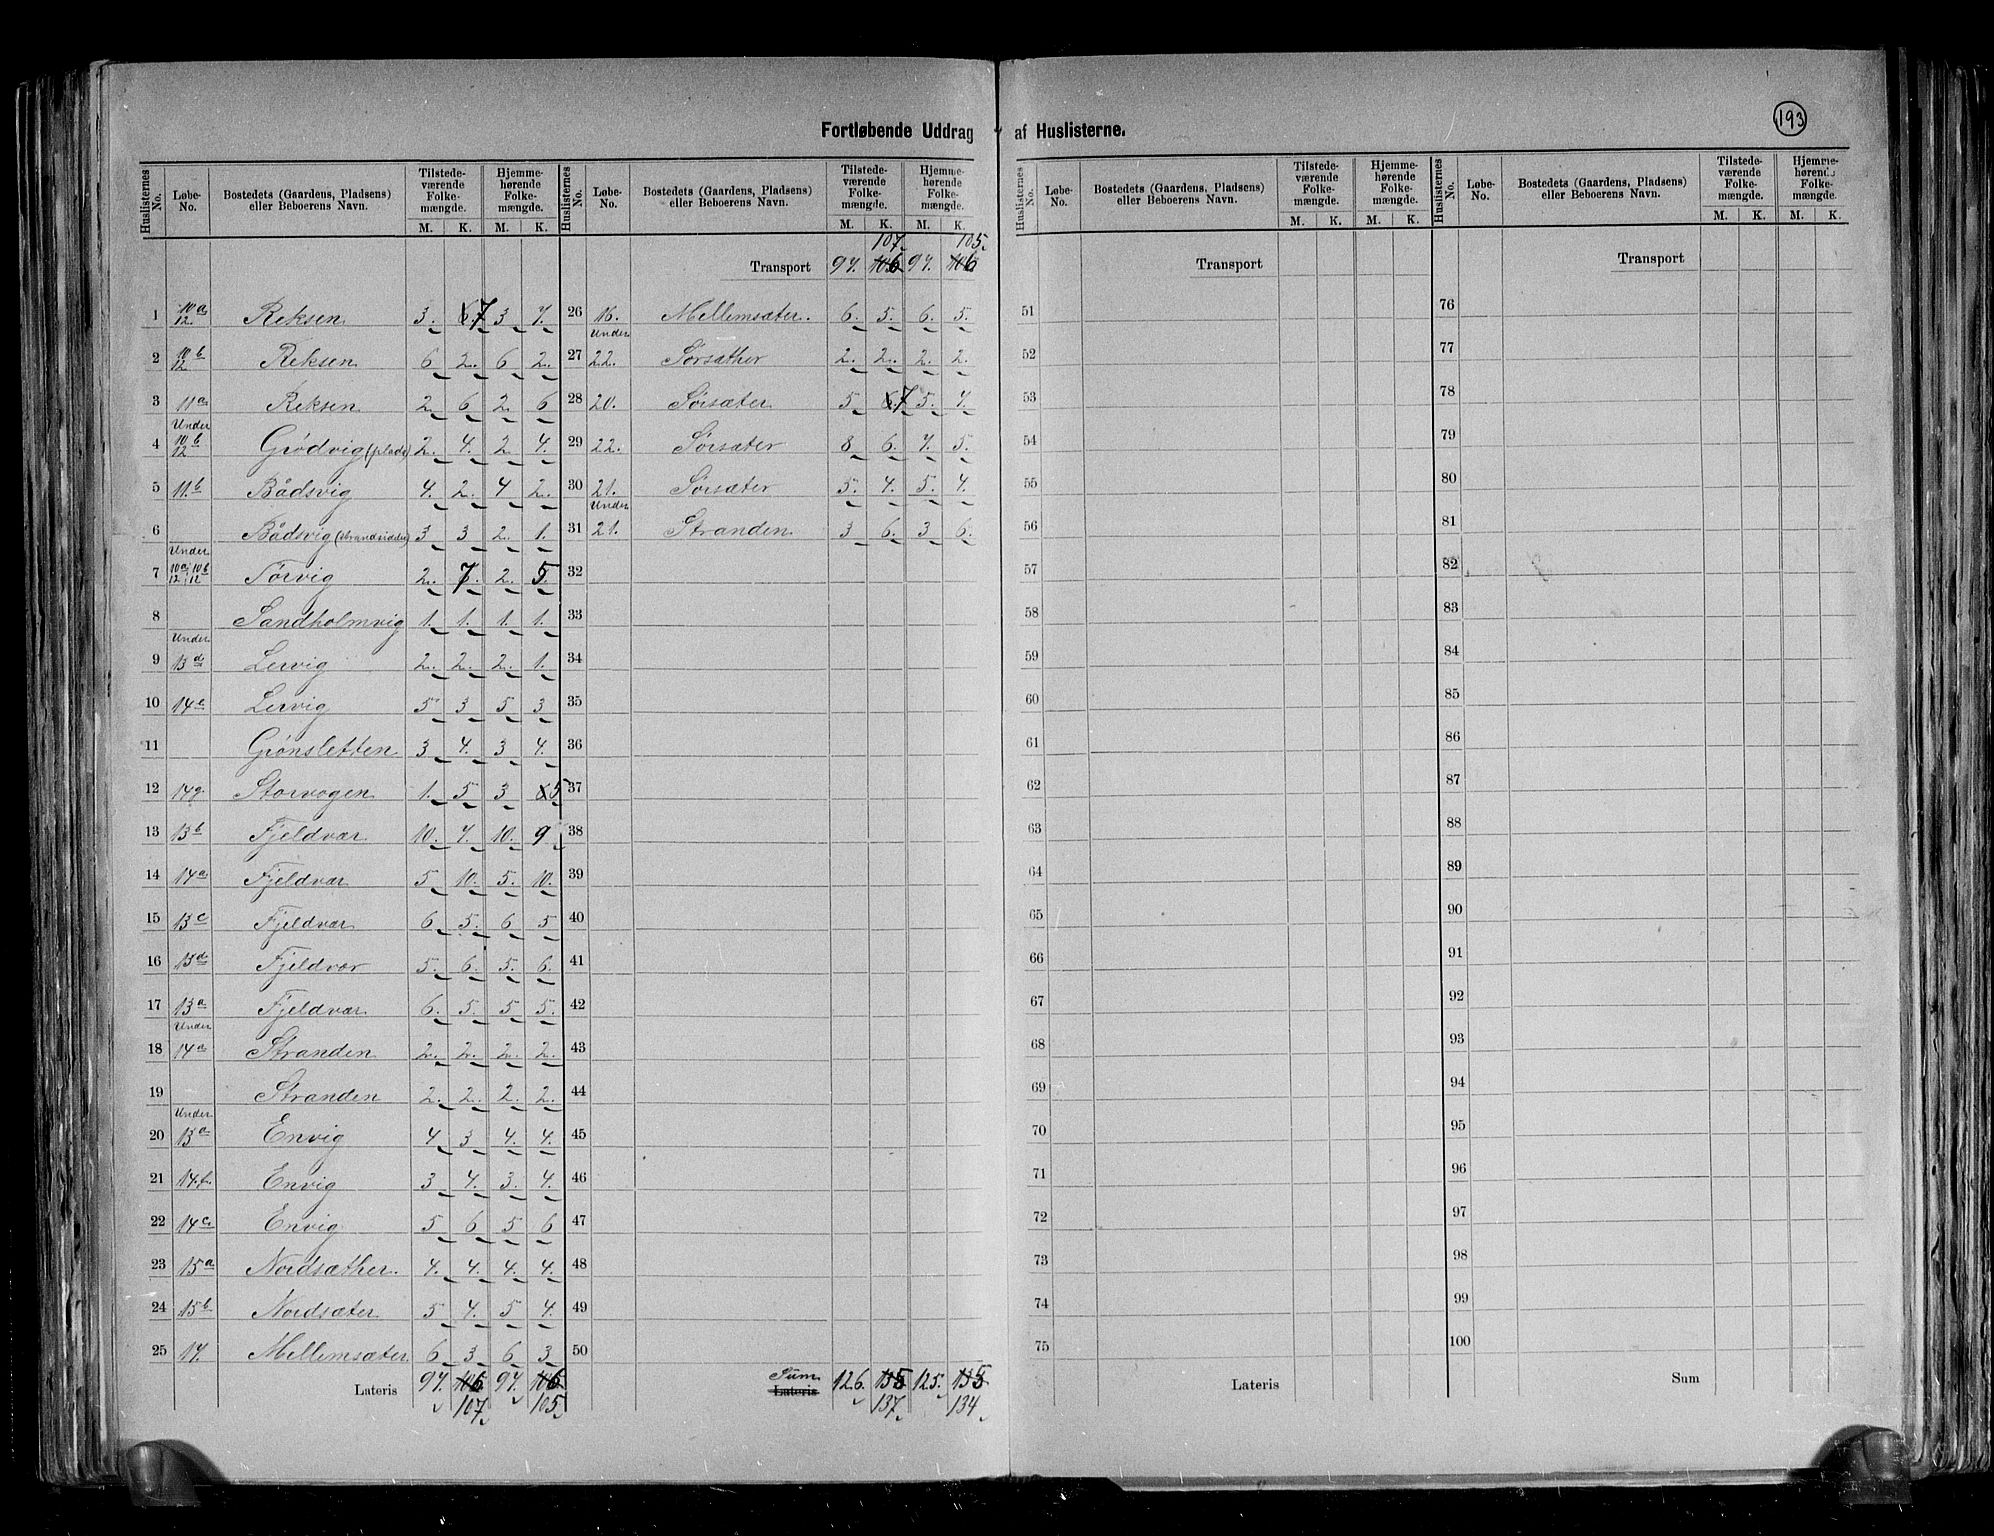 Fortløbende Uddrag af Huslisterne.
193
Huslisternes No. | Løbe-No. | Bostedets (Gaardens, Pladsens) eller Beboerens Navn. | Tilstedeværende Folkemængde. M. K. | Hjemmehørende Folkemængde. M. K.
1 | 10a 12. | Reksen | 3. | 6. 7 | 3 | 7.
2 | 10b 12 | Reksen | 6 | 2. | 6 | 2.
3 | 11a | Reksen | 2. | 6 | 2. | 6
4 | Under 10b 12 | Grödvig (plads) | 2. | 4. | 2. | 4.
5 | 11.b | Bådsvig | 4. | 2. | 4 | 2.
6 | Bådsvig (strandsidder) | 3 | 3 | 2. | 1.
7 | Under 10a 12 10b 12 | Törvig | 2. | 7. | 2. | 5.
8 | Sandholmvig | 1. | 1. | 1. | 1.
9 | Under 13d | Lervig | 2. | 2. | 2. | 1.
10 | 14e | Lervig | 5 | 3 | 5 | 3
11 | Grönsletten | 3 | 4. | 3 | 4.
12 | 14g. | Storvogen | 1. | 5 | 3 | 6 5
13 | 13b | Fjeldvær | 10. | 7. | 10. | 9
14 | 14a | Fjeldvær | 5 | 10. | 5. | 10.
15 | 13c | Fjeldvær | 6 | 5. | 6 | 5
16 | 13d | Fjeldvær | 5. | 6. | 5. | 6.
17 | 13a | Fjeldvær | 6. | 5. | 5 | 5.
18 | Under 14a | Stranden | 2. | 2. | 2. | 2.
19 | Stranden | 2. | 2. | 2. | 2.
20 | Under 13a | Envig | 4 | 3 | 4. | 4.
21 | 14f. | Envig | 3 | 4. | 3. | 4.
22 | 14c. | Envig | 5 | 6 | 5 | 6
23 | 15a | Nordsæther. | 4. | 4. | 4. | 4.
24 | 15b | Nordsæter | 5 | 4. | 5 | 4.
25 | 17. | Mellemsæter. | 6 | 3 | 6 | 3
Lateris | 97. | 106 107 | 97. | 106 105
Huslisternes No. | Løbe-No. | Bostedets (Gaardens, Pladsens) eller Beboerens Navn. | Tilstedeværende Folkemængde. M. K. | Hjemmehørende Folkemængde. M. K.
Transport | 97. | 107 106 | 97. | 105 106
26 | 16. | Mellemsæter. | 6. | 5. | 6. | 5.
27 | Under 22. | Sørsæther | 2. | 2. | 2. | 2.
28 | 20. | Sørsæter | 5 | 6. 7 | 5. | 4.
29 | 22. | Sørsæter | 8 | 6. | 7. | 5.
30 | 21. | Sørsæter | 5. | 4. | 5. | 4.
31 | Under 21. | Stranden | 3 | 6. | 3 | 6.
32
33
34
35
36
37
38
39
40
41
42
43
44
45
46
47
48
49
50
Sum Lateris | 126. | 135 137 | 125. | 135 134
Huslisternes No. | Løbe-No. | Bostedets (Gaardens, Pladsens) eller Beboerens Navn. | Tilstedeværende Folkemængde. M. K. | Hjemmehørende Folkemængde. M. K.
Transport
51
52
53
54
55
56
57
58
59
60
61
62
63
64
65
66
67
68
69
70
71
72
73
74
75
Lateris
Huslisternes No. | Løbe-No. | Bostedets (Gaardens, Pladsens) eller Beboerens Navn. | Tilstedeværende Folkemængde. M. K. | Hjemmehørende Folkemængde. M. K.
Transport
76
77
78
79
80
81
82
83
84
85
86
87
88
89
90
91
92
93
94
95
96
97
98
99
100
Sum